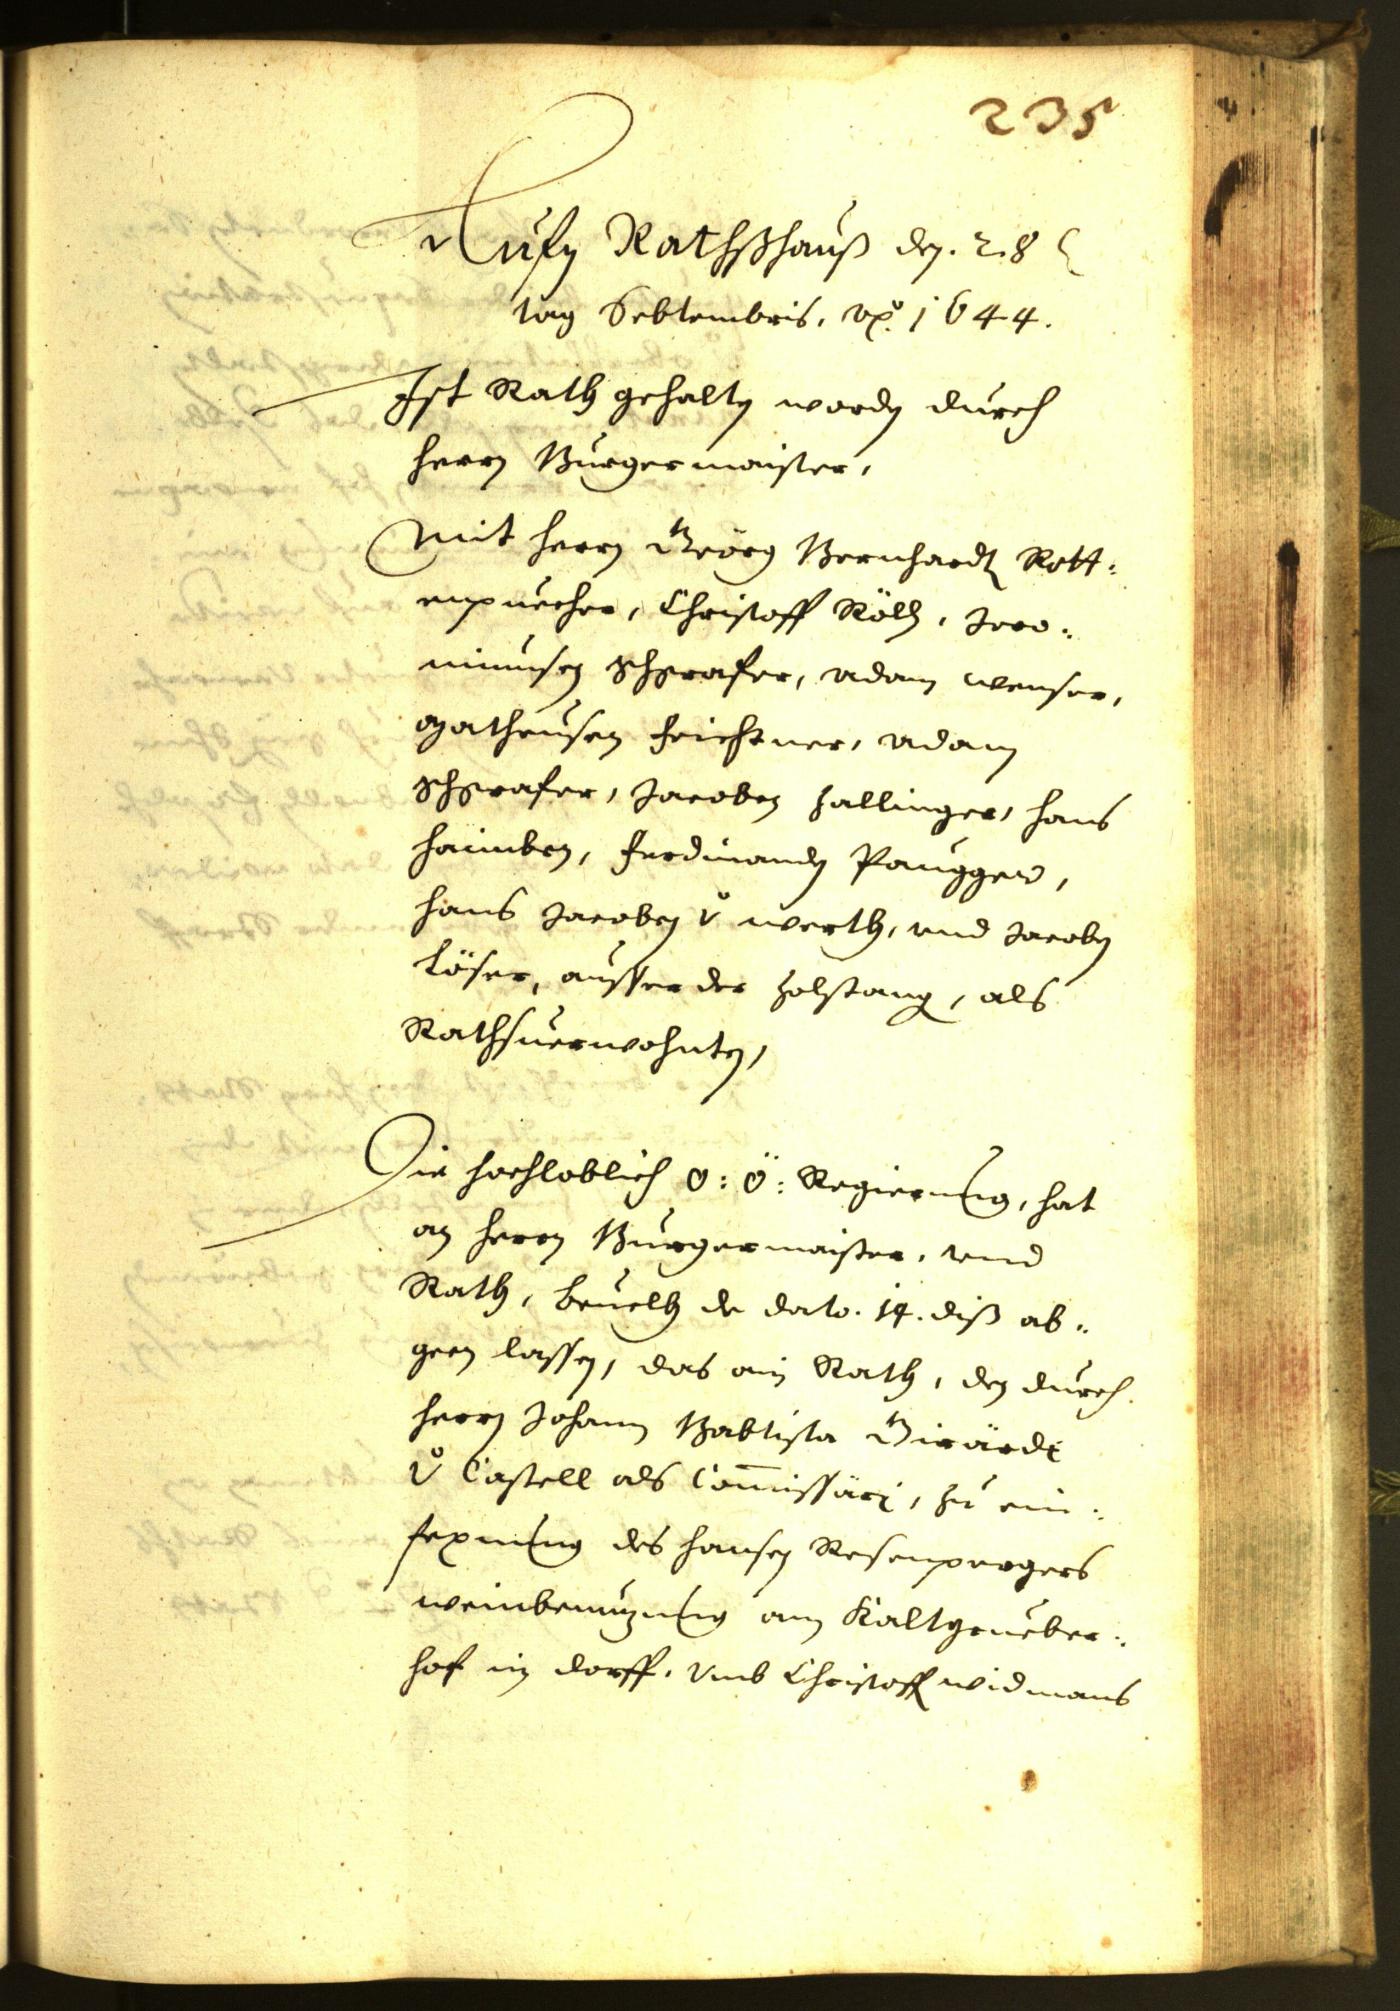 235
Aufn Rathßhauß den. 28
tag Sebtembris. ao. 1644.
Ist Rath gehalten worden durch
herrn Burgermaister,
Mit herrn Georg Bernhardt Rott-
enpuecher, Christoff Röll, Jero-
nimusen Schgrafer, Adam Wenser,
Matheusen Feichtner, Adam
Schgrafer, Jacoben Zallinger, Hans
Haimben, Ferdinanden Paugger,
Hans Jacoben v Werth, und Jacoben
Löser, ausser der Holstang, als
Rathsverwohnten,
Die hochloblich O: Ö: Regierung, hat
an herrn Burgermaister, und
Rath, bevelh de dato. 14. diß ab-
geen lassen, das ain Rath, den durch
herrn Johann Babtista Girardi
v Castell als Comissari, zu ein-
des Hansen Resenpergers
weinbenuzung am Kaltgrueber-
hof in dorff. Umb Christoff Widmans